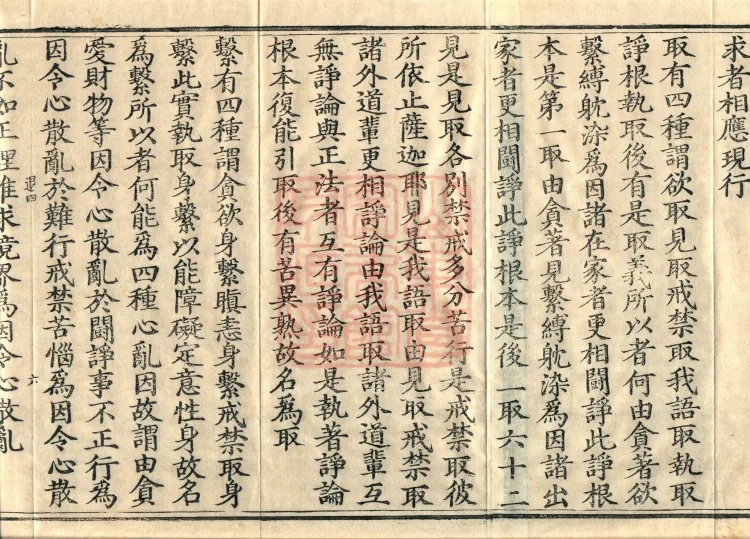 求者相應現行
取有四種謂欲取見取戒禁取我語取執取
諍根執取後有是取義所以者何由貪著欲
繫縛躭染爲因諸在家者更相鬪諍此諍根
本是第一取由貪著見繫縛躭染爲因諸出
家者更相鬪諍此諍根本是後一取六十二
見是見取各別禁戒多分苦行是戒禁取彼
所依止薩迦耶見是我語取由見取戒禁取
諸外道輩更相諍論由我語取諸外道輩互
無諍論與正法者互有諍論如是執著諍論
根本復能引取後有苦異熟故名爲取
繫有四種謂貪欲身繫瞋恚身繫戒禁取身
繫此實執取身繫以能障礙定意性身故名
爲繫所以者何能爲四種心亂因故謂由貪
愛財物等因令心散亂於鬪諍事不正行爲
因令心散亂於難行戒禁苦惱爲因令心散
四 六
亂不如正理推求境界爲因令心散亂